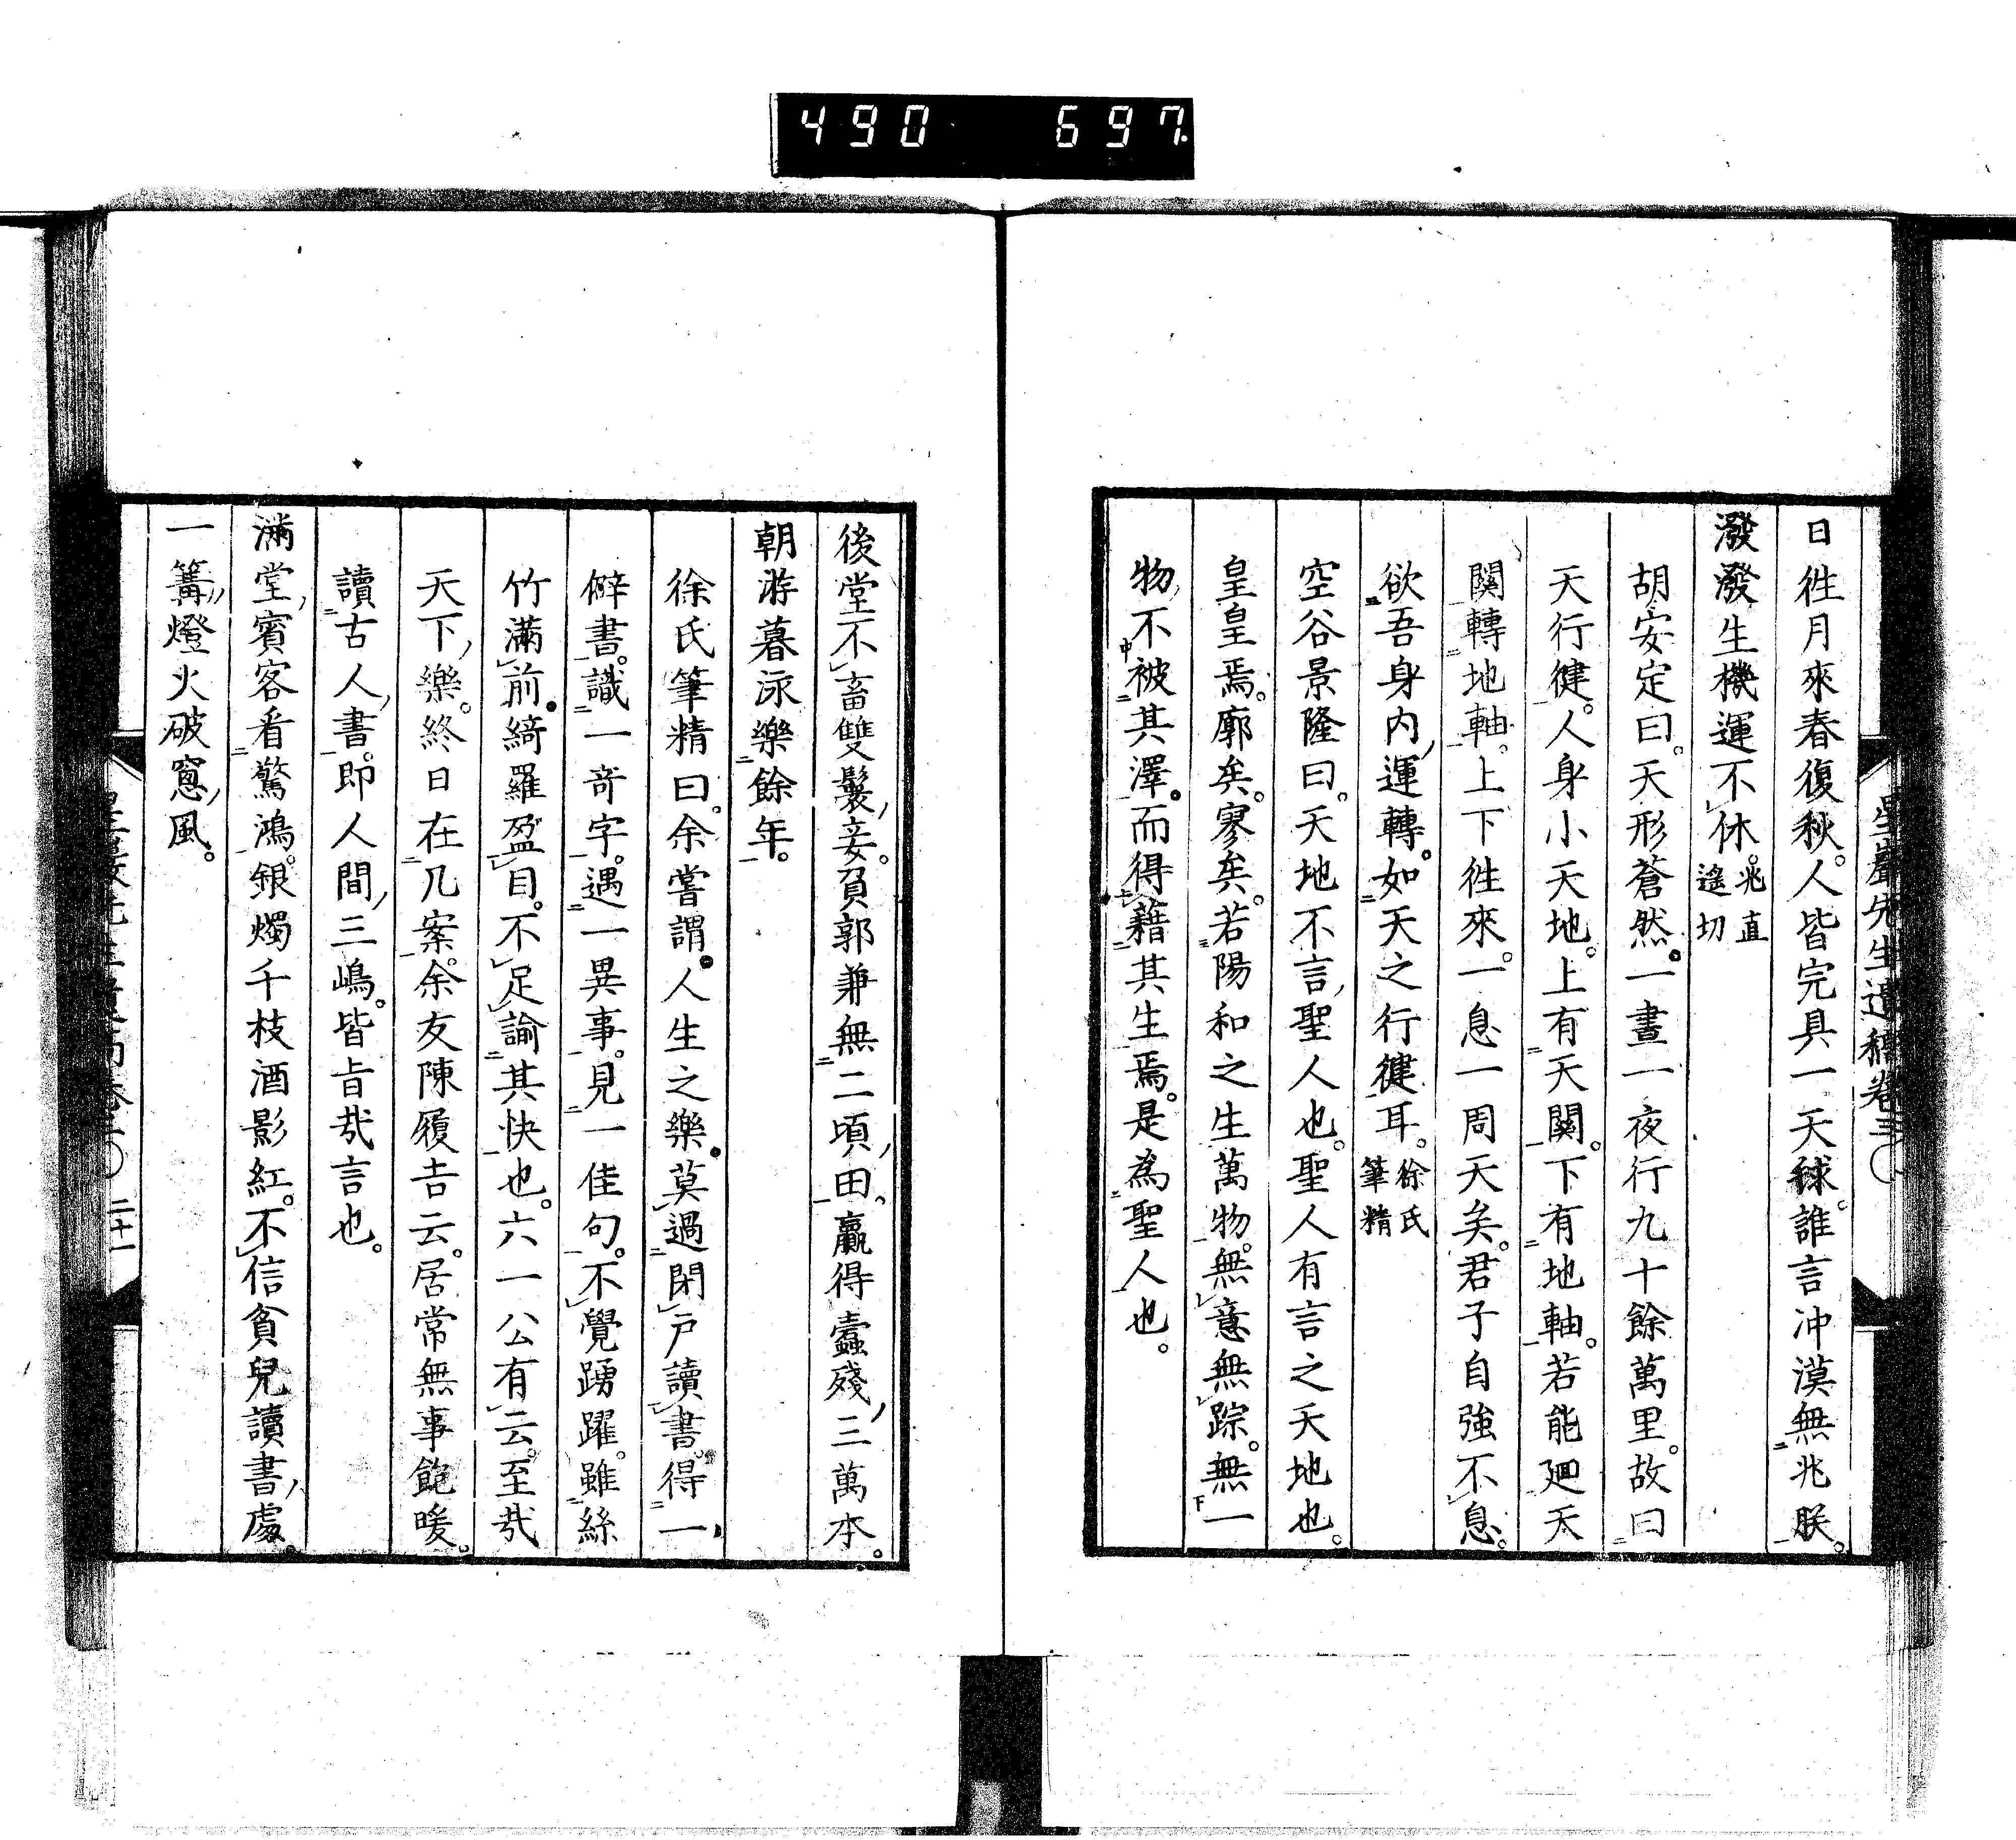 490 697
日徃月來春復秋。人皆完具一天毬。誰言冲漠無兆朕。
潑潑生機運不休。兆直遙切
胡安定曰。天形蒼然。一晝一夜行九十餘萬里。故曰
天行健。人身小天地。上有天關。下有地軸。若能廻天
關轉地軸。上下徃來。一息一周天矣。君子自強不息。
欲吾身内運轉。如天之行健耳。徐氏筆精
空谷景隆曰。天地不言聖人也。聖人有言之天地也。
皇皇焉。廓矣。寥矣。若陽和之生萬物。無意無踪。無一
物不被其澤。而得藉其生焉。是為聖人也。
後堂不畜雙鬟妾。負郭兼無二頃田。贏得蠧殘三萬本。
朝游暮泳樂餘年。
徐氏筆精曰。余嘗謂。人生之樂。莫過閉戸讀書。得一
僻書。識一奇字。遇一異事。見一佳句。不覺踴躍。雖絲
竹滿前。綺羅盈目。不足諭其快也。六一公有云。至哉
天下樂。終日在几案。余友陳履吉云。居常無事飽暖。
讀古人書。即人間三嶋。皆旨哉言也。
滿堂賓客看驚鴻。銀燭千枝酒影紅。不信貧兒讀書處。
一篝燈火破窻風。
二十一